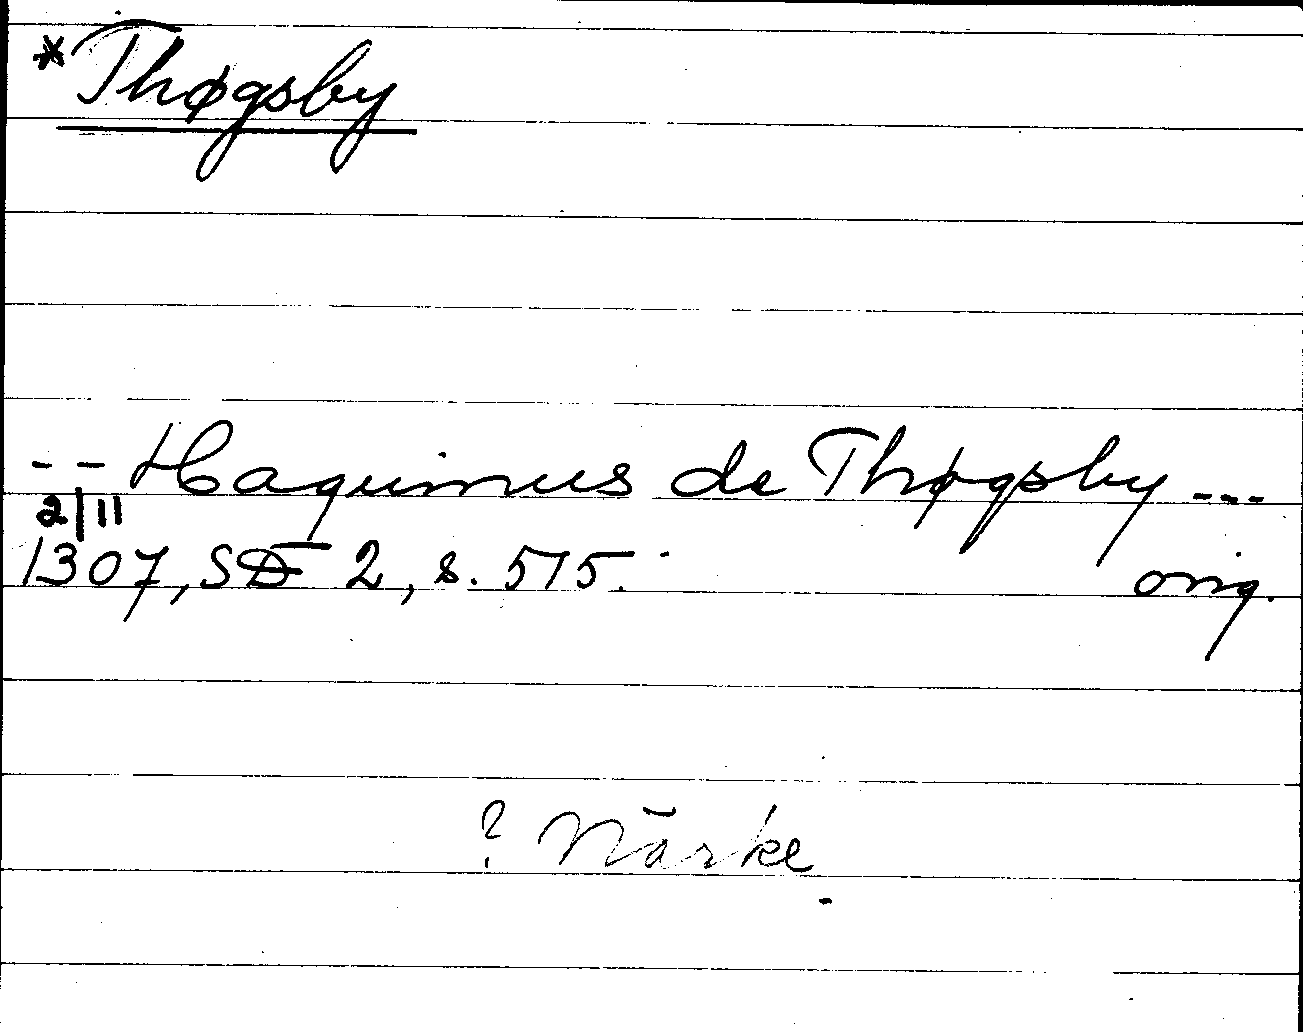 *Thøgsby
-- Haquinus de Thøgsby ---
2/11
1307, SD 2, s. 515.
orig.
? Närke